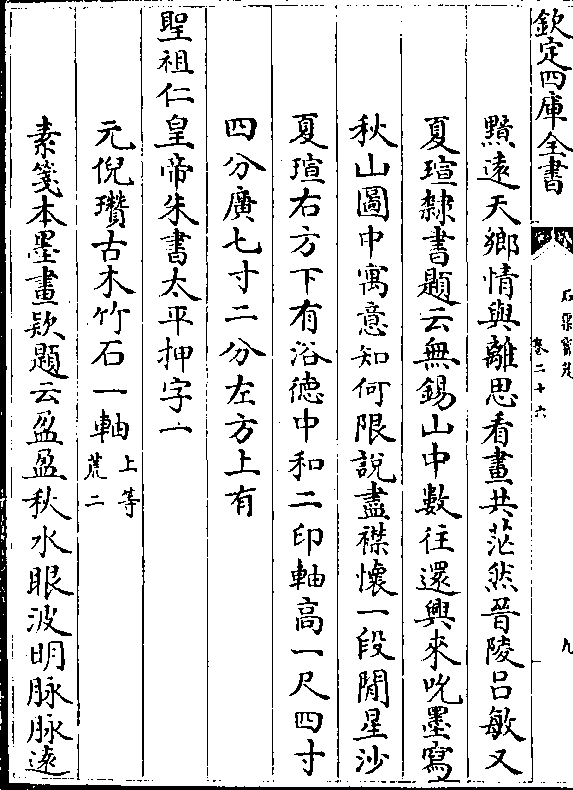 欽定四庫全書
石渠寶笈
卷二十六
九
黯遠天鄉情與離思看畫共茫然晉陵吕敏又
夏瑄隸書題云無錫山中數往還興來吮墨寫
秋山圖中寓意知何限說盡襟懷一段閒星沙
夏瑄右方下有浴德中和二印軸高一尺四寸
四分廣七寸二分左方上有
聖祖仁皇帝朱書太平押字一
元倪瓚古木竹石一軸上等荒二
素箋本墨畫欵題云盈盈秋水眼波明脉脉遠